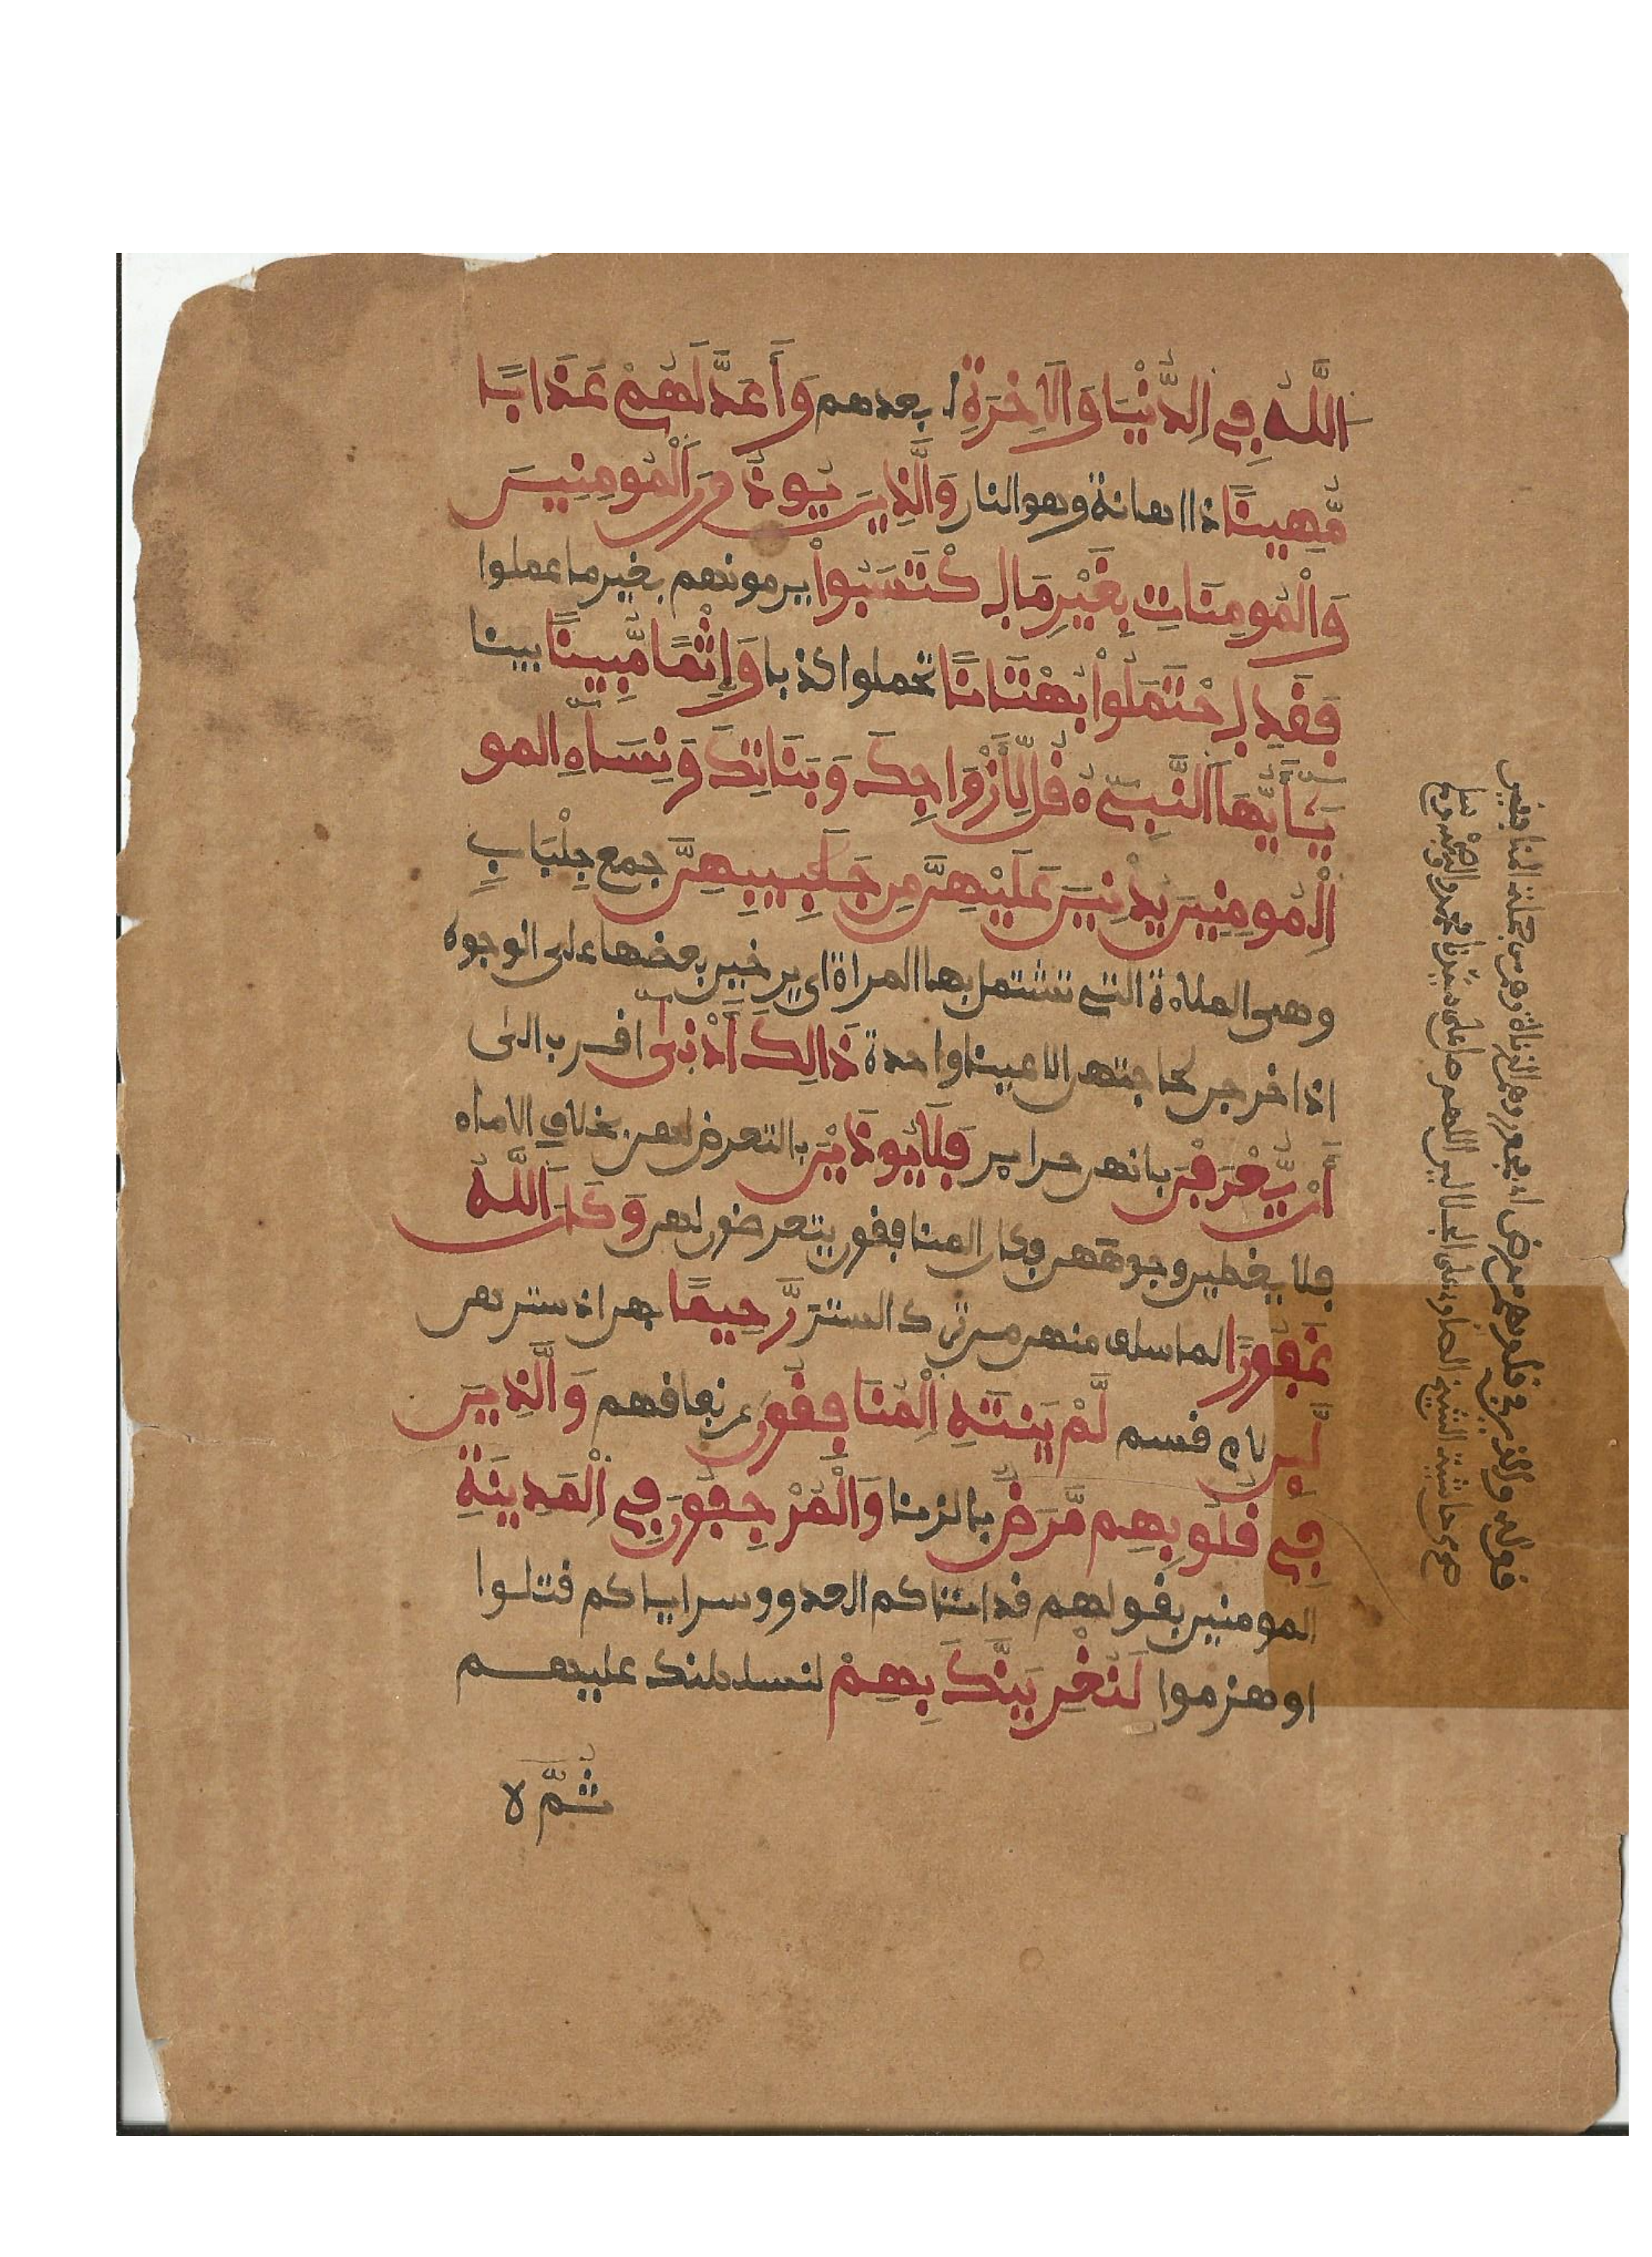 اللَّهُ فِي الدُّنْيَا وَالَاخِرَةِ ابعدهم وَأَعَدَّ لَهُمْ عَذَابًا
مُّهِينًا ذا اهانة وهو النار وَالَّذِينَ يُوذُونَ الْمُومِنِينَ
وَالْمُومِنَاتِ بِغَيْرِ مَا اكْتَسَبُواْ يرمونهم بغير ما عملوا
فَقَدِ احْتَمَلُواْ بُهْتَانًا تحملوا كذبا وَإِثْمًا مُّبِينًا بينا
يَٰأَيُّهَا النَّبِيءُ قُل لِّأَزْوَاجِكَ وَبَنَاتِكَ وَنِسَاءِ المو
الْمُومِنِينَ يُدْنِينَ عَلَيْهِنَّ مِن جَلَٰبِيبِهِنَّ جمع جِلْبَابِ
وهى الملاءة التي تشتمل بها المراة اى يرخين بعضها على الوجوه
اذا خرجن لحاجتهن الا عينا واحدة ذَالِكَ أَدْنَىٰ اقرب الى
أَنْ يُّعْرَفْنَ بانهن حراير فَلَا يُوذَيْنَ بالتعرض لهن بخلاف الاماء
فلا يغطين وجوههن وكان المنافقون يتعرضون لهن وَكَانَ اللَّهُ
غَفُورًا لما سلف منهن من ترك الستر رَّحِيمًا بهن اذ سترهن
لَئِن لام قسم لَّمْ يَنتَهِ الْمُنَافِقُونَ عن نفاقهم وَالَّذِينَ
فِي قُلُوبِهِم مَّرَضٌ بالزنا وَالْمُرْجِفُونَ فِي الْمَدِينَةِ
المومنين بقولهم قد اتاكم العدو وسراياكم قتلوا
او هزموا لَنُغْرِيَنَّكَ بِهِمْ لنسلطنك عليهم
ثُمَّ لا
قوله والذين في قلوبهم مرض اى فجور وهم الزناة وهم من جملة المنافقين